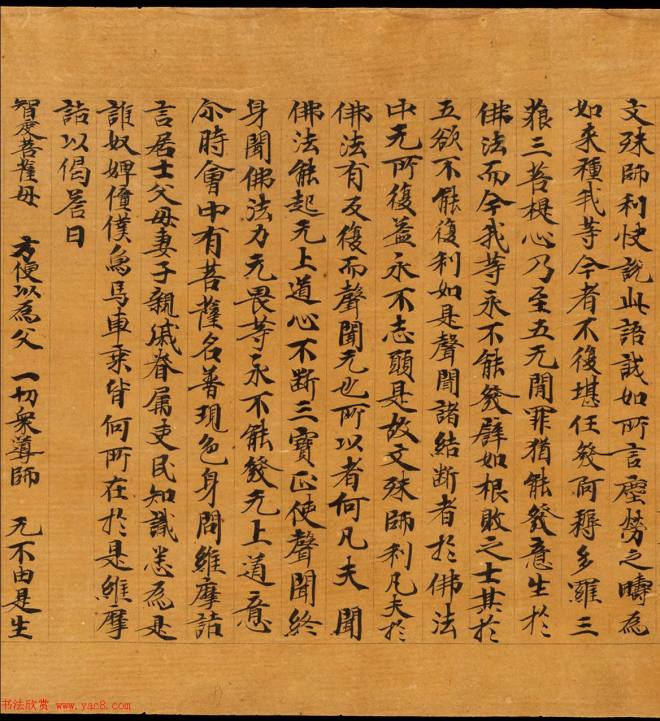 文殊師利快說此語誠如所言塵勞之疇為
如来種我等今者不復堪任發阿耨多羅三
藐三菩提心乃至五无閒罪猶能發意生於
佛法而今我等永不能發譬如根敗之士其於
五欲不能復利如是聲聞諸結断者於佛法
中无所復益永不志願是故文殊師利凡夫於
佛法有反復而聲聞无也所以者何凡夫聞
佛法能起无上道心不断三寶正使聲聞終
身聞佛法力无畏等永不能發无上道意
尒時會中有菩薩名普現色身問維摩詰
言居士父母妻子親戚眷属吏民知識悉為是
誰奴婢僮僕象馬車乘皆何所在於是維摩
詰以偈荅曰
智度菩薩母 方便以為父 一切衆導師 无不由是生
书法欣赏 www.yac8.com